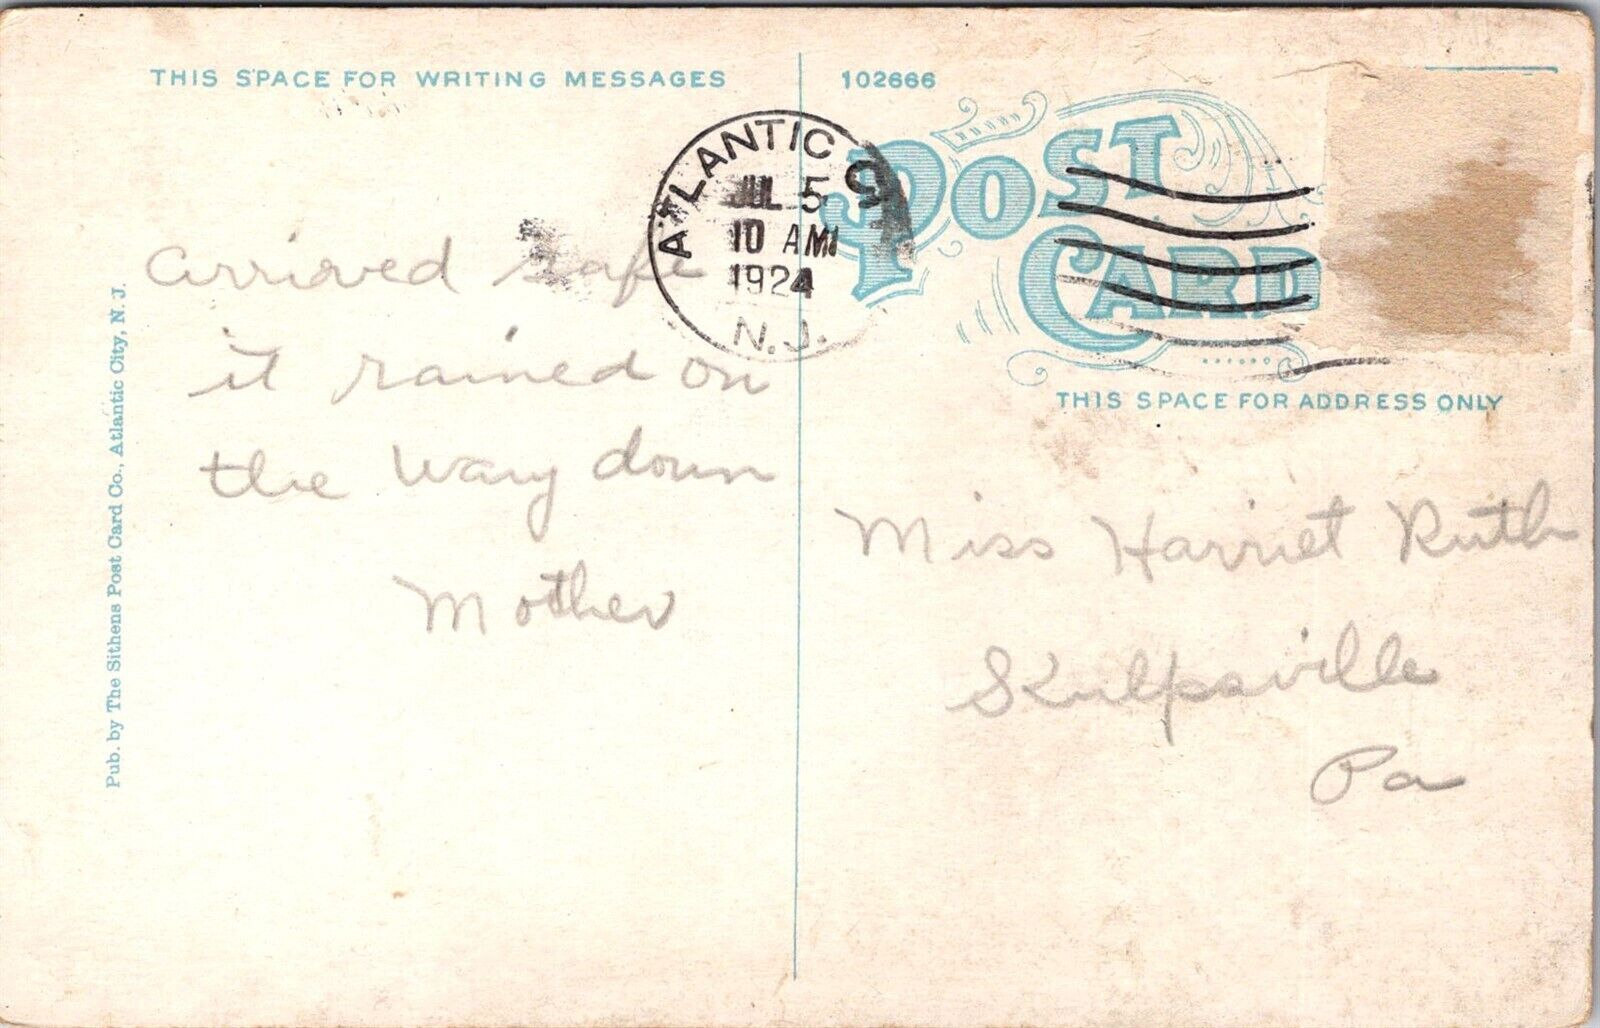 THIS SPACE FOR WRITING MESSAGES
102666
POST CARD
THIS SPACE FOR ADDRESS ONLY
ATLANTIC CITY
JUL 5
10 AM
1924
N. J.
arrived safe
it rained on
the way down
Mother
Miss Harriet Ruth
Skulpsville
Pa
Pub. by The Sithens Post Card Co., Atlantic City, N. J.